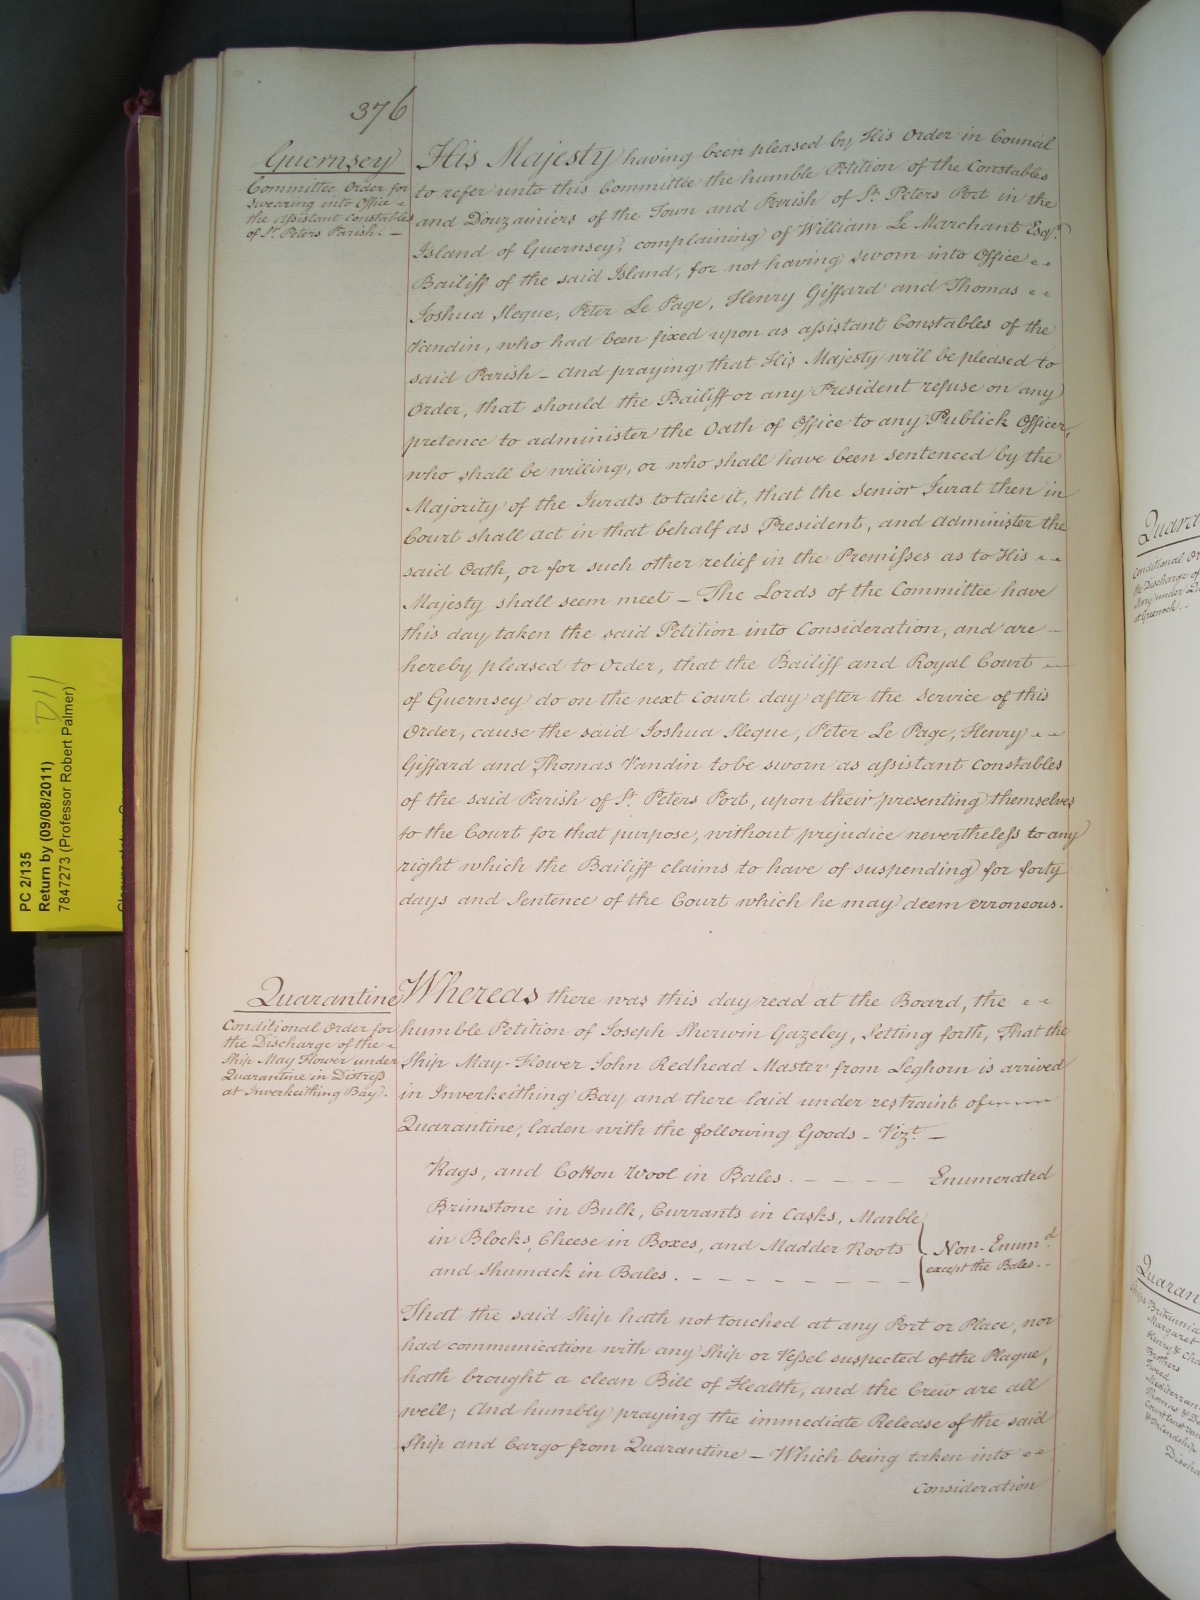 376
Guernsey
Committee Order for
swearing into Office
the assistant Constables
of St. Peters Parish. —
His Majesty having been pleased by His Order in Council
to refer unto this Committee the humble Petition of the Constables
and Douzainiers of the Town and Parish of St. Peters Port in the
Island of Guernsey, complaining of William Le Marchant Esqr.
Bailiff of the said Island, for not having sworn into Office
Joshua Heque, Peter Le Page, Henry Giffard and Thomas
Vandin, who had been fixed upon as assistant Constables of the
said Parish – and praying that His Majesty will be pleased to
Order, that should the Bailiff or any President refuse on any
pretence to administer the Oath of Office to any Publick Officer,
who shall be willing, or who shall have been sentenced by the
Majority of the Jurats to take it, that the Senior Jurat then in
Court shall act in that behalf as President, and administer the
said Oath, or for such other relief in the Premisses as to His
Majesty shall seem meet – The Lords of the Committee have
this day taken the said Petition into Consideration, and are –
hereby pleased to Order, that the Bailiff and Royal Court
of Guernsey do on the next Court day after the Service of this
Order, cause the said Joshua Heque, Peter Le Page, Henry
Giffard and Thomas Vandin to be sworn as assistant Constables
of the said Parish of St. Peters Port, upon their presenting themselves
to the Court for that purpose, without prejudice nevertheless to any
right which the Bailiff claims to have of suspending for forty
days and Sentence of the Court which he may deem erroneous.
Quarantine
Conditional Order for
the Discharge of the
Ship May Flower under
Quarantine in Distress
at Inverkeithing Bay.
Whereas there was this day read at the Board, the
humble Petition of Joseph Sherwin Gazeley, Setting forth, That the
Ship May-Flower John Redhead Master from Leghorn is arrived
in Inverkeithing Bay and there laid under restraint of
Quarantine, laden with the following Goods – Vizt. –
Rags, and Cotton Wool in Bales . – – – – Enumerated
Brimstone in Bulk, Currants in Casks, Marble
in Blocks, Cheese in Boxes, and Madder Roots
and Shumack in Bales . – – – – – – –
Non-Enumd.
except the Bales. –
That the said Ship hath not touched at any Port or Place, nor
had communication with any Ship or Vessel suspected of the Plague,
hath brought a clean Bill of Health, and the Crew are all
well; And humbly praying the immediate Release of the said
Ship and Cargo from Quarantine – Which being taken into
Consideration
PC 2/135
Return by (09/08/2011)
7847273 (Professor Robert Palmer)
D11
Quara
Conditional Or
the Discharge of
at Greenock. –
Quaran
Ships Britannia
Margaret
Henry & Cha
Brothers
Tweed
Mediterran
Thomas &
& Friendship
Discha